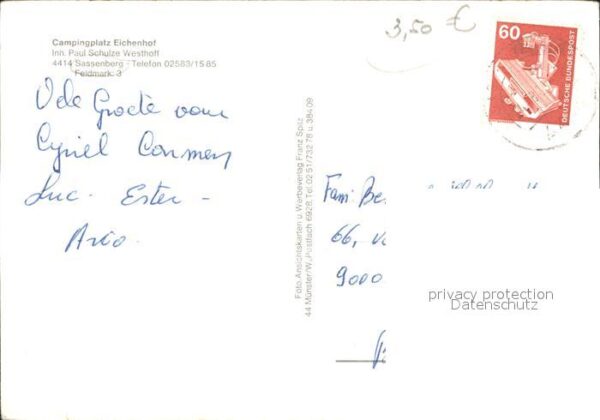 Campingplatz Eichenhof
Inh. Paul Schulze Westhoff
4414 Sassenberg - Telefon 02583/15 85
Feldmark 3
3,50 €
60
DEUTSCHE BUNDESPOST
Vele Groete van
Cyriel Carmen
Luc - Ester -
Foto Ansichtskarten u. Werbeverlag Franz Spitz
44 Münster/W., Postfach 6928, Tel. 02 51/732 78 u. 384 09
Fam. Be
66,
9000
privacy protection
Datenschutz